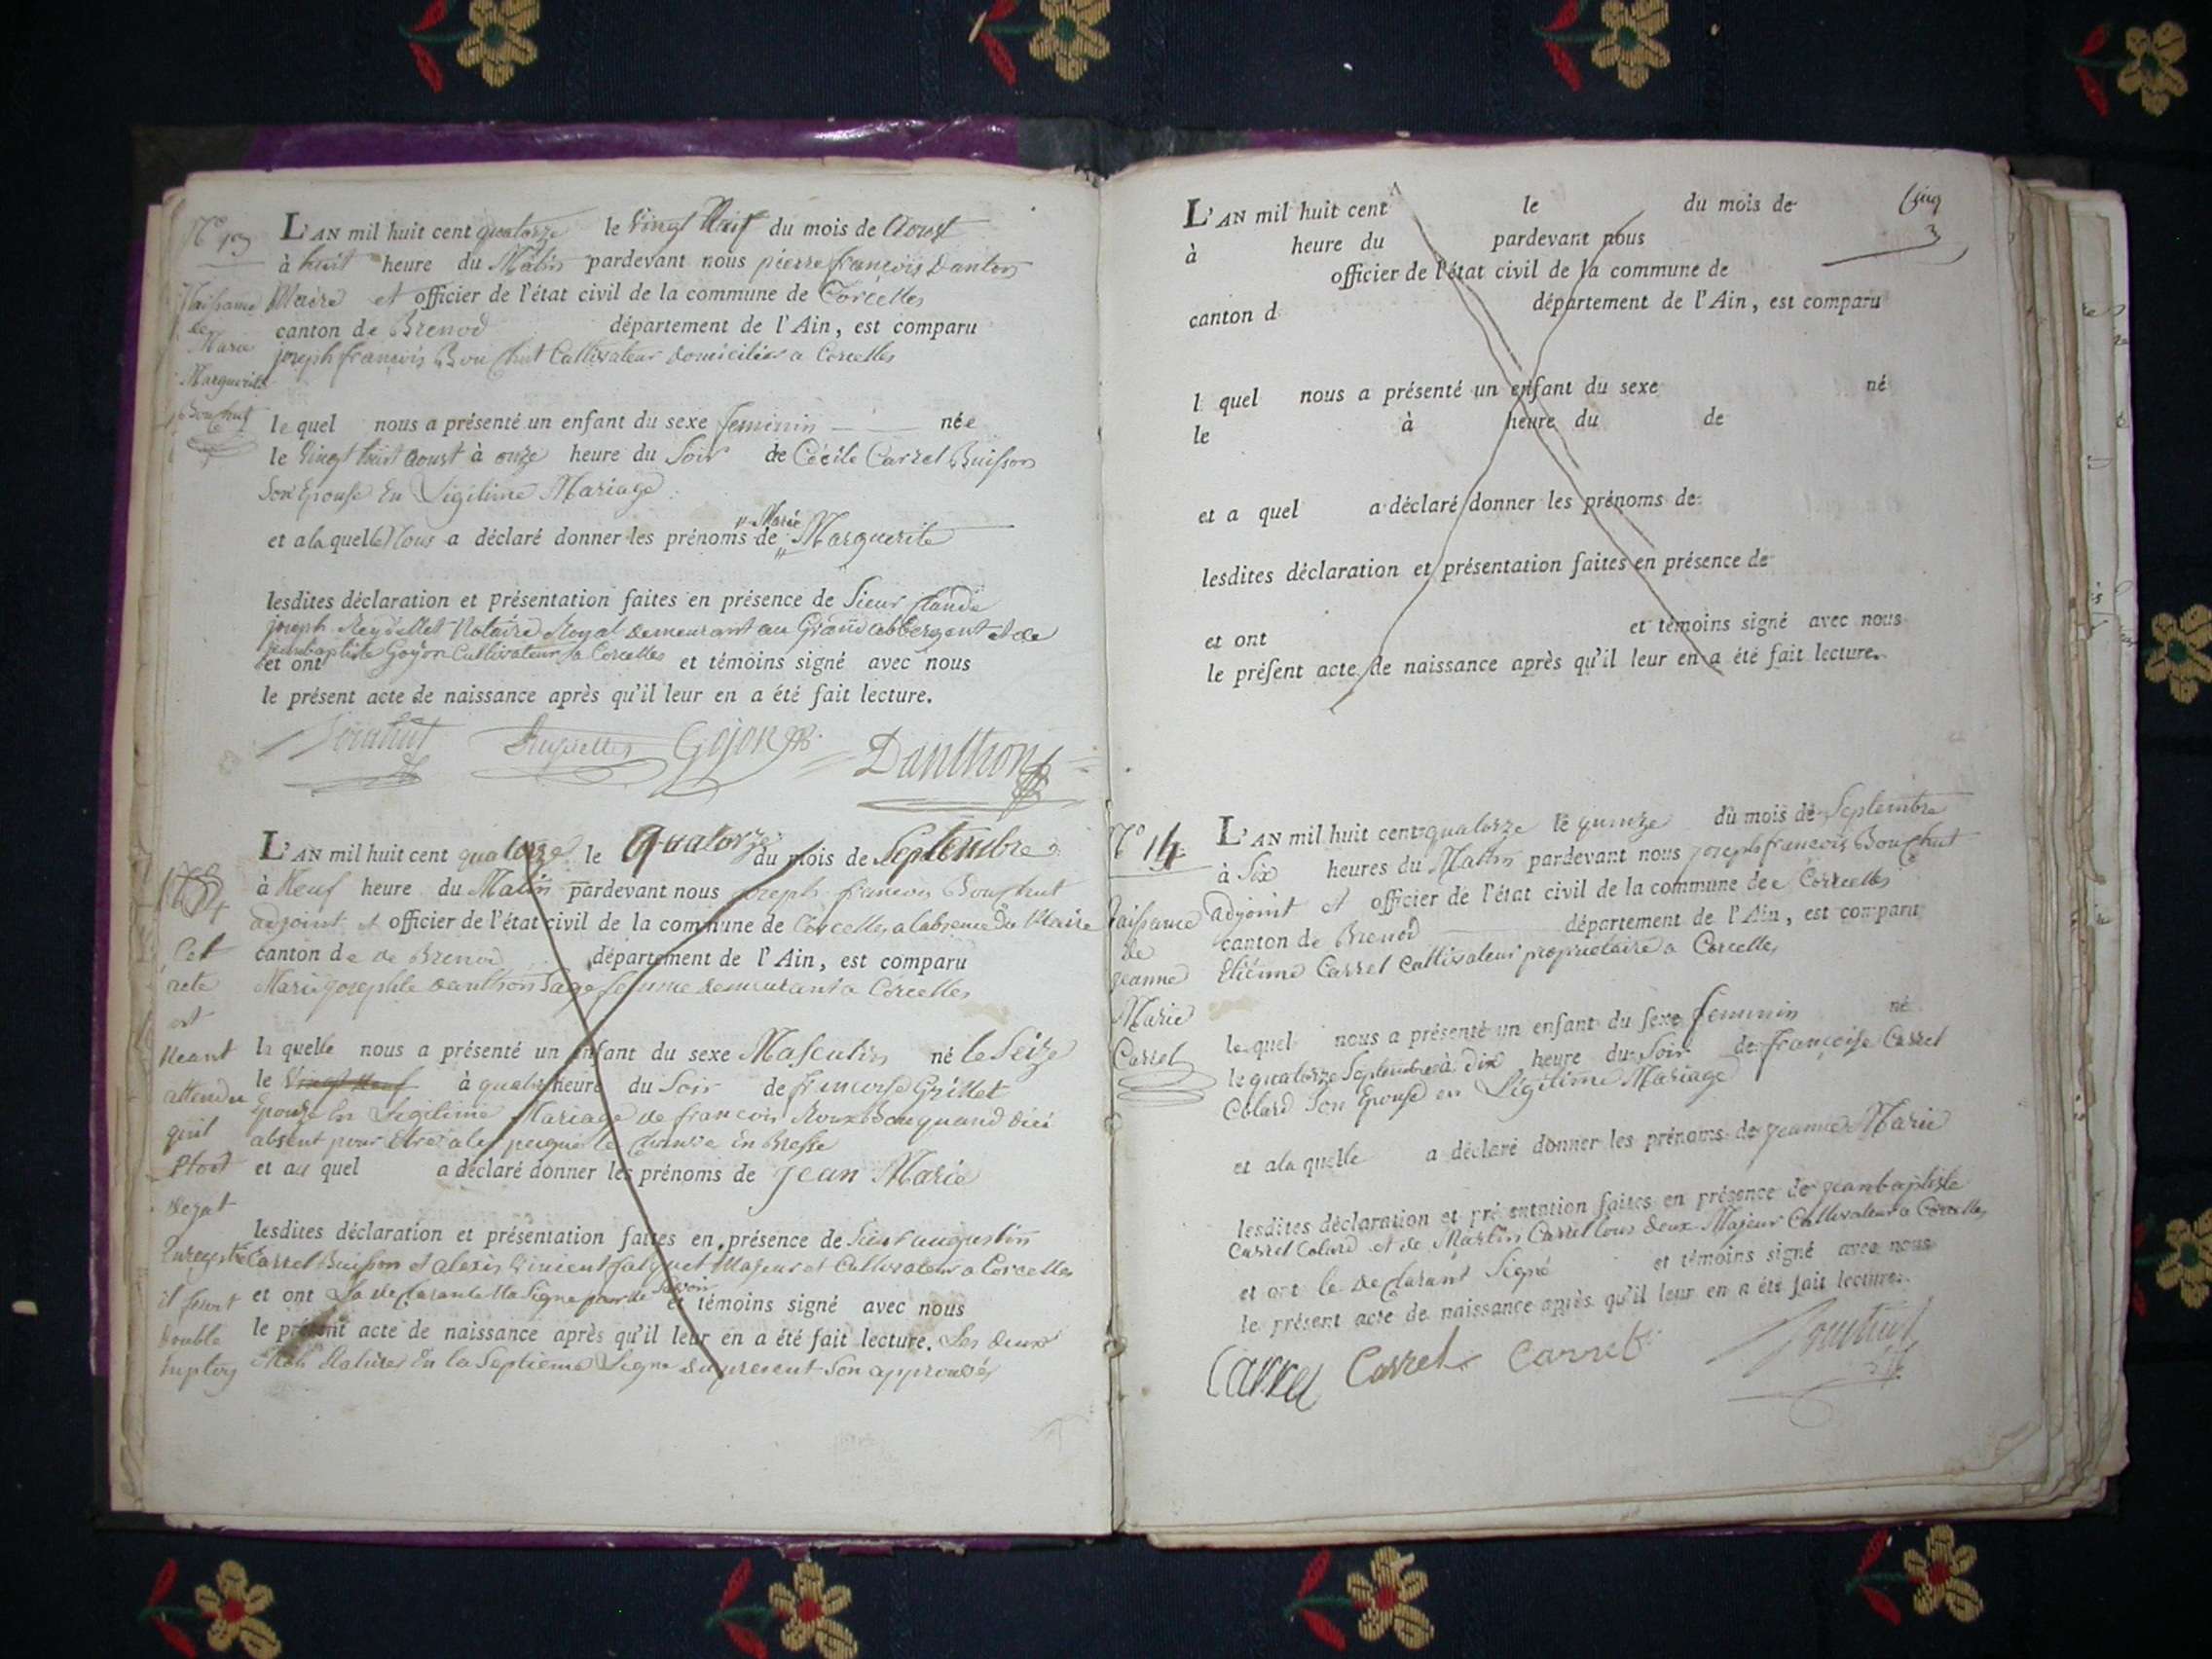 N.o 13
Naissance
de
Marie
Marguerite
Bouchut
L'AN mil huit cent quatorze le vingt Neuf du mois de Aoust
à huit heure du Matin pardevant nous pierre françois Danton
Maire et officier de l'état civil de la commune de Corcelles
canton de Brenod département de l'Ain, est comparu
joseph françois Bouchut Cultivateur domicilier a Corcelles
le quel nous a présenté un enfant du sexe feminin née
le Vingt huit Aoust à onze heure du Soir de Cécile Carrel Buisson
Son Epouse En Légitime Mariage
et a la quelle Nous a déclaré donner les prénoms de " Marie " Marguerite
lesdites déclaration et présentation faites en présence de Sieur Claude
joseph Reydellet Notaire Royal demeurant au Grand abbergent et de
jeanbaptiste Goyon Cultivateur a Corcelles
et ont et témoins signé avec nous
le présent acte de naissance après qu'il leur en a été fait lecture.
Bouchut Goyon JB. Danthon
Cet
acte
est
Neant
attendu
quil
Etoit
dejat
Enregistré
il feroit
double
Employ
L'AN mil huit cent quatorze le Quatorze du mois de Septembre
à Neuf heure du Matin pardevant nous joseph francois Bouchut
adjoint et officier de l'état civil de la commune de Corcelles a labsence du Maire
canton de de Brenod département de l'Ain, est comparu
Marie josephte danthon Sage femme demeurant a Corcelles
la quelle nous a présenté un enfant du sexe Masculin né le Seize
le Vingt Neuf à quatre heure du Soir de francoise Grillet
Epouze En Legitime Mariage de francois Roux dici
absent pour Etre alé peigne le Chanvre En Bresse
et au quel a déclaré donner les prénoms de Jean Marie
lesdites déclaration et présentation faites en présence de Sieur augustin
Carrel Buisson et alexis Vincent falquet Majeur et Cultivateur a Corcelles
et ont La declarante Na Signe pour ne Savoir et témoins signé avec nous
le présent acte de naissance après qu'il leur en a été fait lecture. Les deux
Mots Raturer En la Septieme Ligne du present Son approuvés
Cinq
3
L'AN mil huit cent le du mois de
à heure du pardevant nous
officier de l'état civil de la commune de
canton d département de l'Ain, est comparu
l quel nous a présenté un enfant du sexe né
le à heure du de
et a quel a déclaré donner les prénoms de
lesdites déclaration et présentation faites en présence de
et ont et témoins signé avec nous
le présent acte de naissance après qu'il leur en a été fait lecture.
N.o 14
Naissance
de
jeanne
Marie
Carrel
L'AN mil huit cent quatorze le quinze du mois de Septembre
à Six heures du Matin pardevant nous joseph françois Bouchut
Adjoint et officier de l'état civil de la commune de Corcelles
canton de Brenod département de l'Ain, est comparu
Etienne Carrel cultivateur proprietaire a Corcelles
le quel nous a présenté un enfant du sexe feminin né
le quatorze Septembre à dix heure du Soir de françoise Carrel
Colard Son Epouse en Légitime Mariage
et a la quelle a déclaré donner les prénoms de jeanne Marie
lesdites déclaration et présentation faites en présence de jeanbaptiste
Carrel Colard et de Martin Carrel tous deux Majeur Cultivateur a Corcelles
et ont le declarant Signé et témoins signé avec nous
le présent acte de naissance après qu'il leur en a été fait lecture.
Carrel Carrel Carrel Bouchut